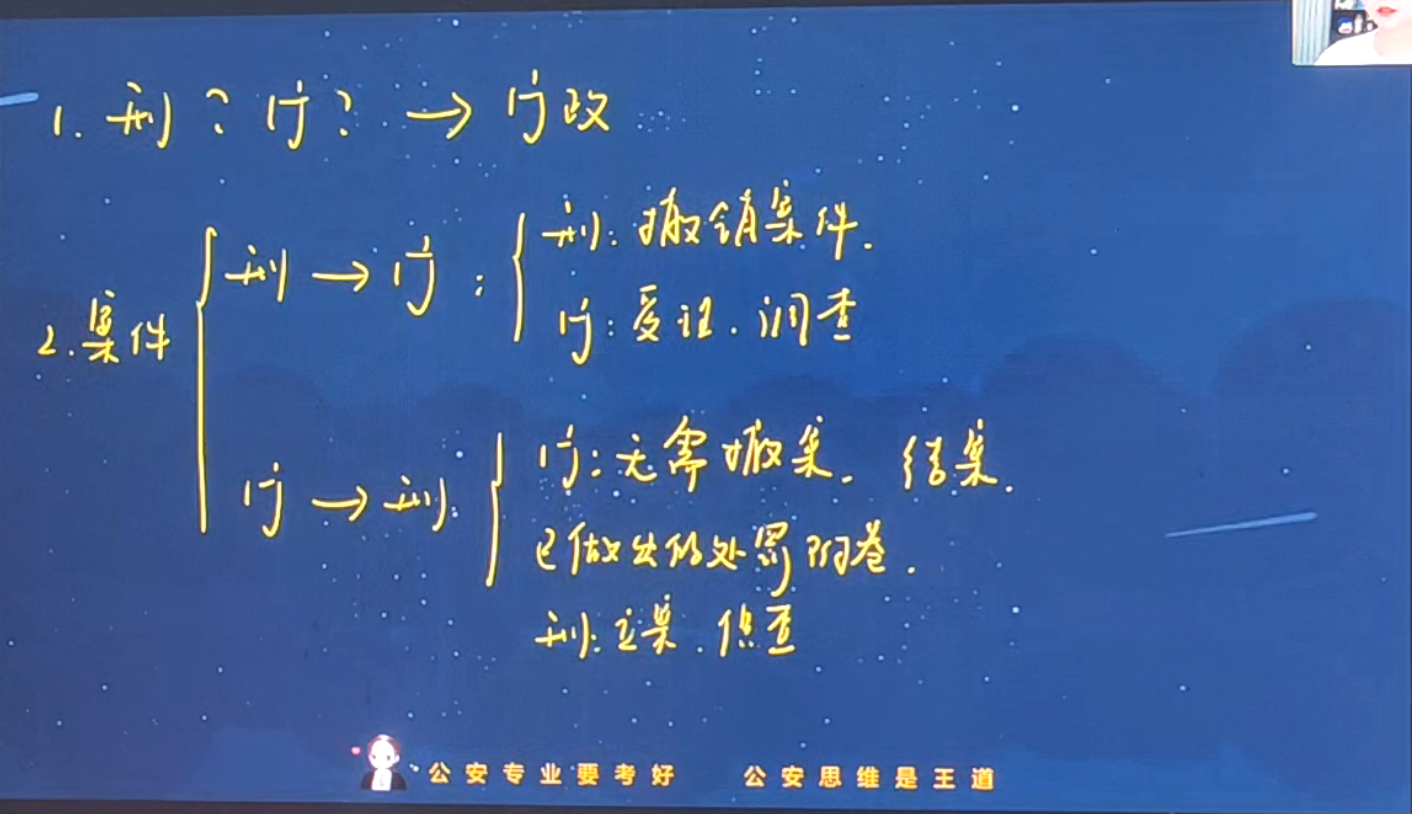 1. 刑？行？→ 行政
2. 案件
刑 → 行：
刑：撤销案件.
行：受理. 调查
行 → 刑：
行：无需撤案. 结案.
已做出的处罚附卷.
刑：立案. 侦查
公安专业要考好 公安思维是王道